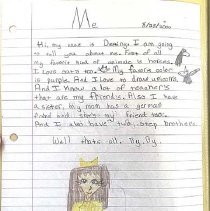 Me
Hi, my name is Deminga I am going
to tell you about me. First of all
my favorite kind of animals is horses.
I love cats too. My favorite color
is purple. And I Love to draw unicorns.
And I Know a lot of
that are my friends. Also I have
a sister. My mom has a german
she's my friend too.
And I also have two step brothers.
Well thats all. By, By.